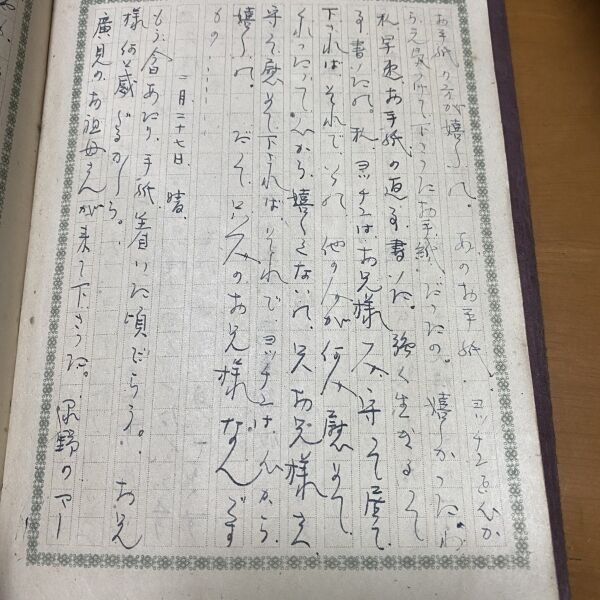 お手紙の方が嬉しいの。あのお手紙、ヨッチエを心か
らえ気つけて下さったお手紙だったの。嬉しかったわ
私早速お手紙の返事書いた。強く生きるって
事書いたの。私、ヨッチエは、お兄様へ守って居て
下されば、それでいいの、他の人が何人慰めて
くれったって心から嬉しくないの、只お兄様さえ
守って慰めて下されば、それで、ヨッチエは、心から
嬉しいの。だって、只一人のお兄様なんです
もの……
二月二十七日、晴、
もう今あたり、手紙着いた頃だらう。お兄
様何と感ぶるかしら。
廣見のお祖母さんが来て下さった。河野のマー